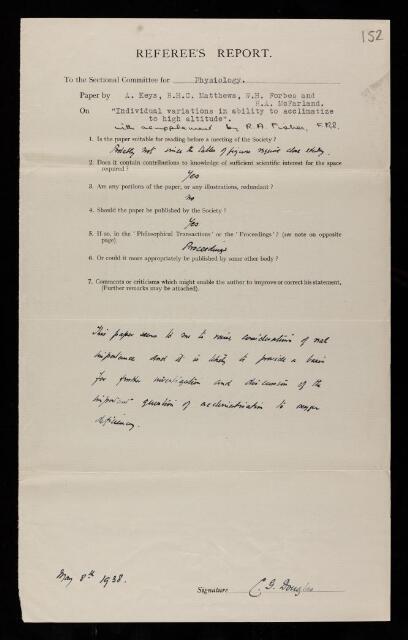 152
REFEREE'S REPORT.
To the Sectional Committee for Physiology.
Paper by A. Keys, B.H.C. Matthews, W.H. Forbes and
R.A. McFarland.
On "Individual variations in ability to acclimatize
to high altitude".
with a supplement by R.A. Fisher, F.R.S.
1. Is the paper suitable for reading before a meeting of the Society ?
Probably not since the tables of figures require close study.
2. Does it contain contributions to knowledge of sufficient scientific interest for the space
required ?
Yes
3. Are any portions of the paper, or any illustrations, redundant ?
no
4. Should the paper be published by the Society ?
Yes
5. If so, in the 'Philosophical Transactions' or the 'Proceedings' ? (see note on opposite
page).
Proceedings
6. Or could it more appropriately be published by some other body ?
7. Comments or criticisms which might enable the author to improve or correct his statement,
(Further remarks may be attached).
This paper seems to me to raise considerations of real
importance and it is likely to provide a basis
for further investigation and discussion of the
important question of acclimatisation to oxygen
deficiency.
May 8th 1938.
Signature C. G. Douglas